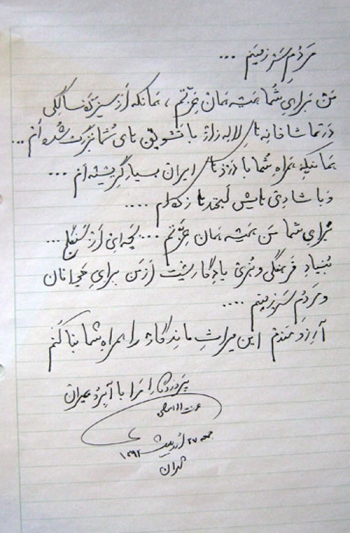 مردم سرزمینم ...
من برای شما همیشه همان عزتم، همانکه از سیزده سالگی
در تماشاخانه‌های لاله‌زار با تشویق‌های شما بزرگ شده‌ام ...
همانیکه همراه شما با دردهای ایران بسیار گریسته‌ام ...
و با شادی‌هایش لبخندها زده‌ام ....
برای شما من همیشه همان عزتم ...
بنیاد فرهنگی و هنری یادگاریست از من برای جوانان
و مردم سرزمینم ....
آرزومندم این میراث ماندگار را همراه شما بنا کنم
پروردگارا مرا با آبرو بمیران
عزت‌الله انتظامی
جمعه ۲۷ اردیبهشت ۱۳۹۲
تهران